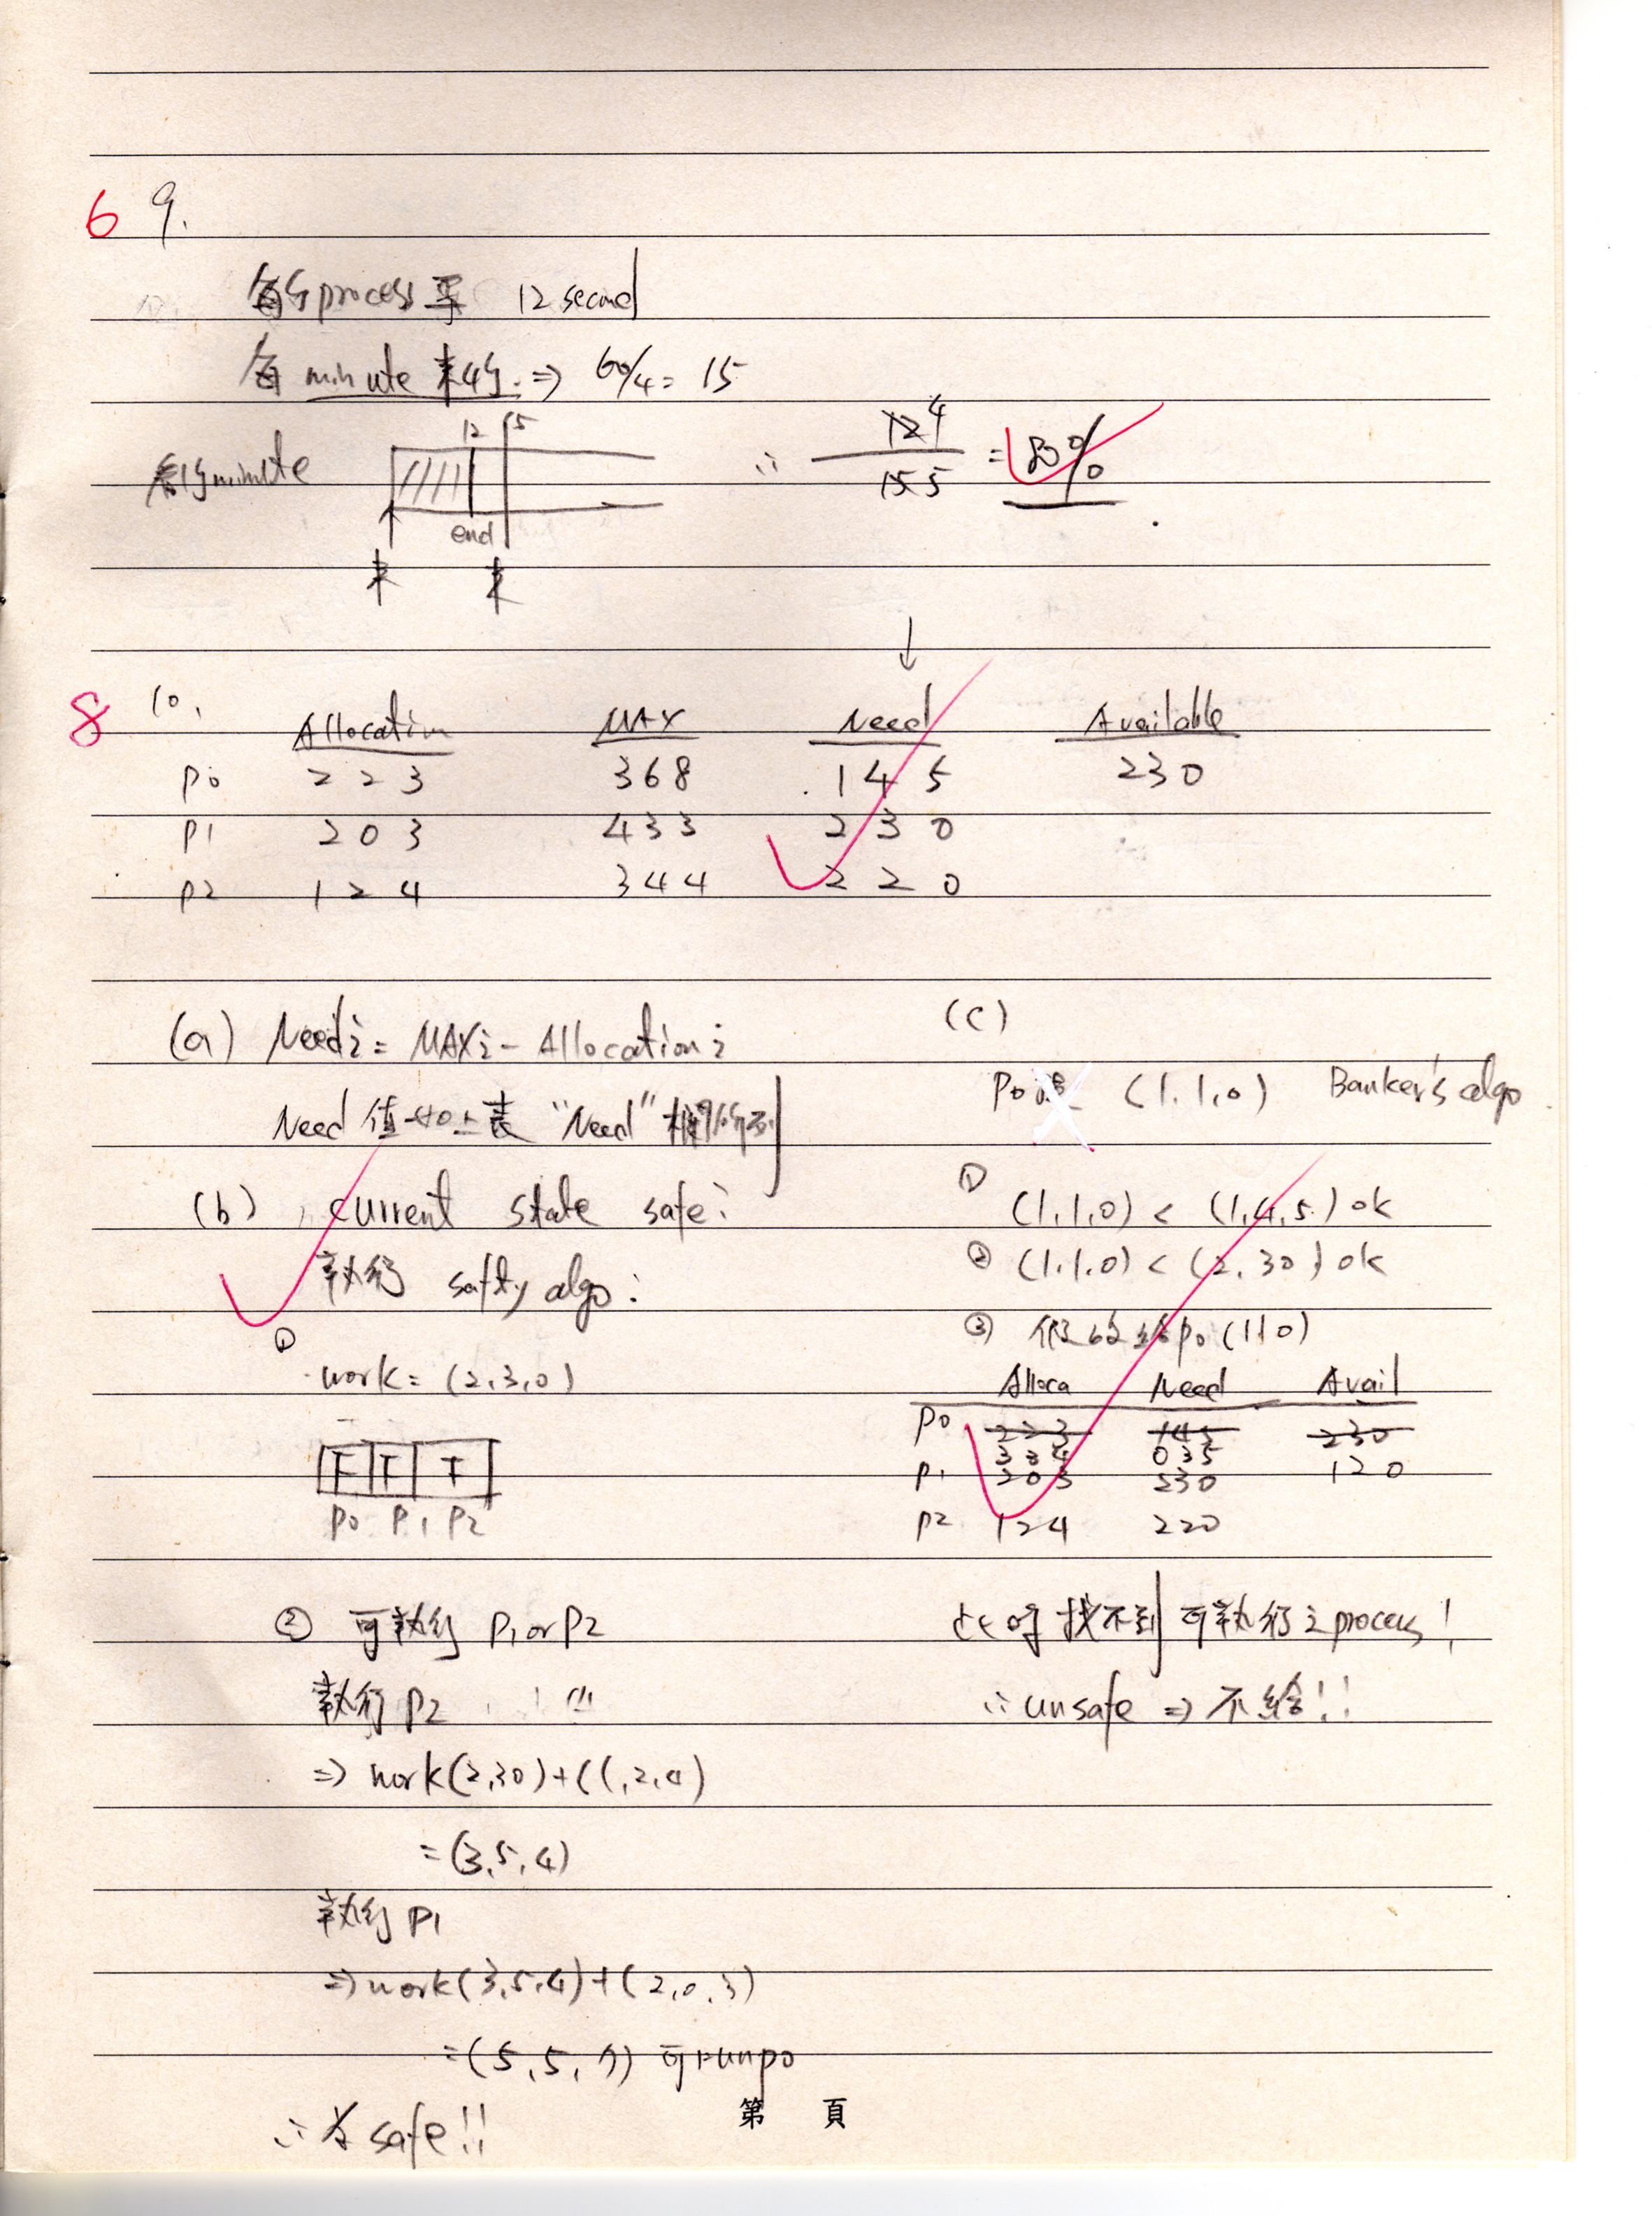 6 9.
每個process要 12 second
每 minute 來4個. ⇒ 60/4 = 15
每個minute
12 15
end
來 來
∴ 12 4 / 15 5 = 80%
8 10.
Allocation MAX Need Available
P0 2 2 3 3 6 8 1 4 5 2 3 0
P1 2 0 3 4 3 3 2 3 0
P2 1 2 4 3 4 4 2 2 0
(a) Needi = MAXi - Allocationi
Need 值如上表 "Need" 欄所示
(b) current state safe:
執行 safty algo:
①
work = (2,3,0)
F F F
P0 P1 P2
② 可執行 P1 or P2
執行 P2
⇒ work(2,3 0)+(1,2,4)
= (3,5,4)
執行 P1
⇒ work(3,5,4)+(2,0,3)
= (5,5,7) 可run p0
∴ 為 safe!!
(c)
P0 (1,1,0) Banker's algo
① (1,1,0) < (1,4,5) ok
② (1,1,0) < (2,3 0) ok
③ 假設給P0 (1 1 0)
Alloca Need Avail
P0 2 2 3 1 4 5 2 3 0
0 3 5 1 2 0
P1 2 0 3 2 3 0
P2 1 2 4 2 2 0
此時找不到可執行之process!
∴ unsafe ⇒ 不給!!
第 頁